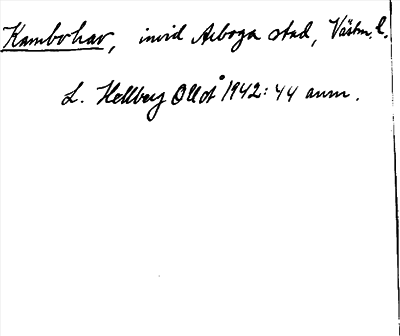 Kambohav, invid Arboga stad, Västm. l.
L. Hellberg OUOÅ 1942: 44 anm.